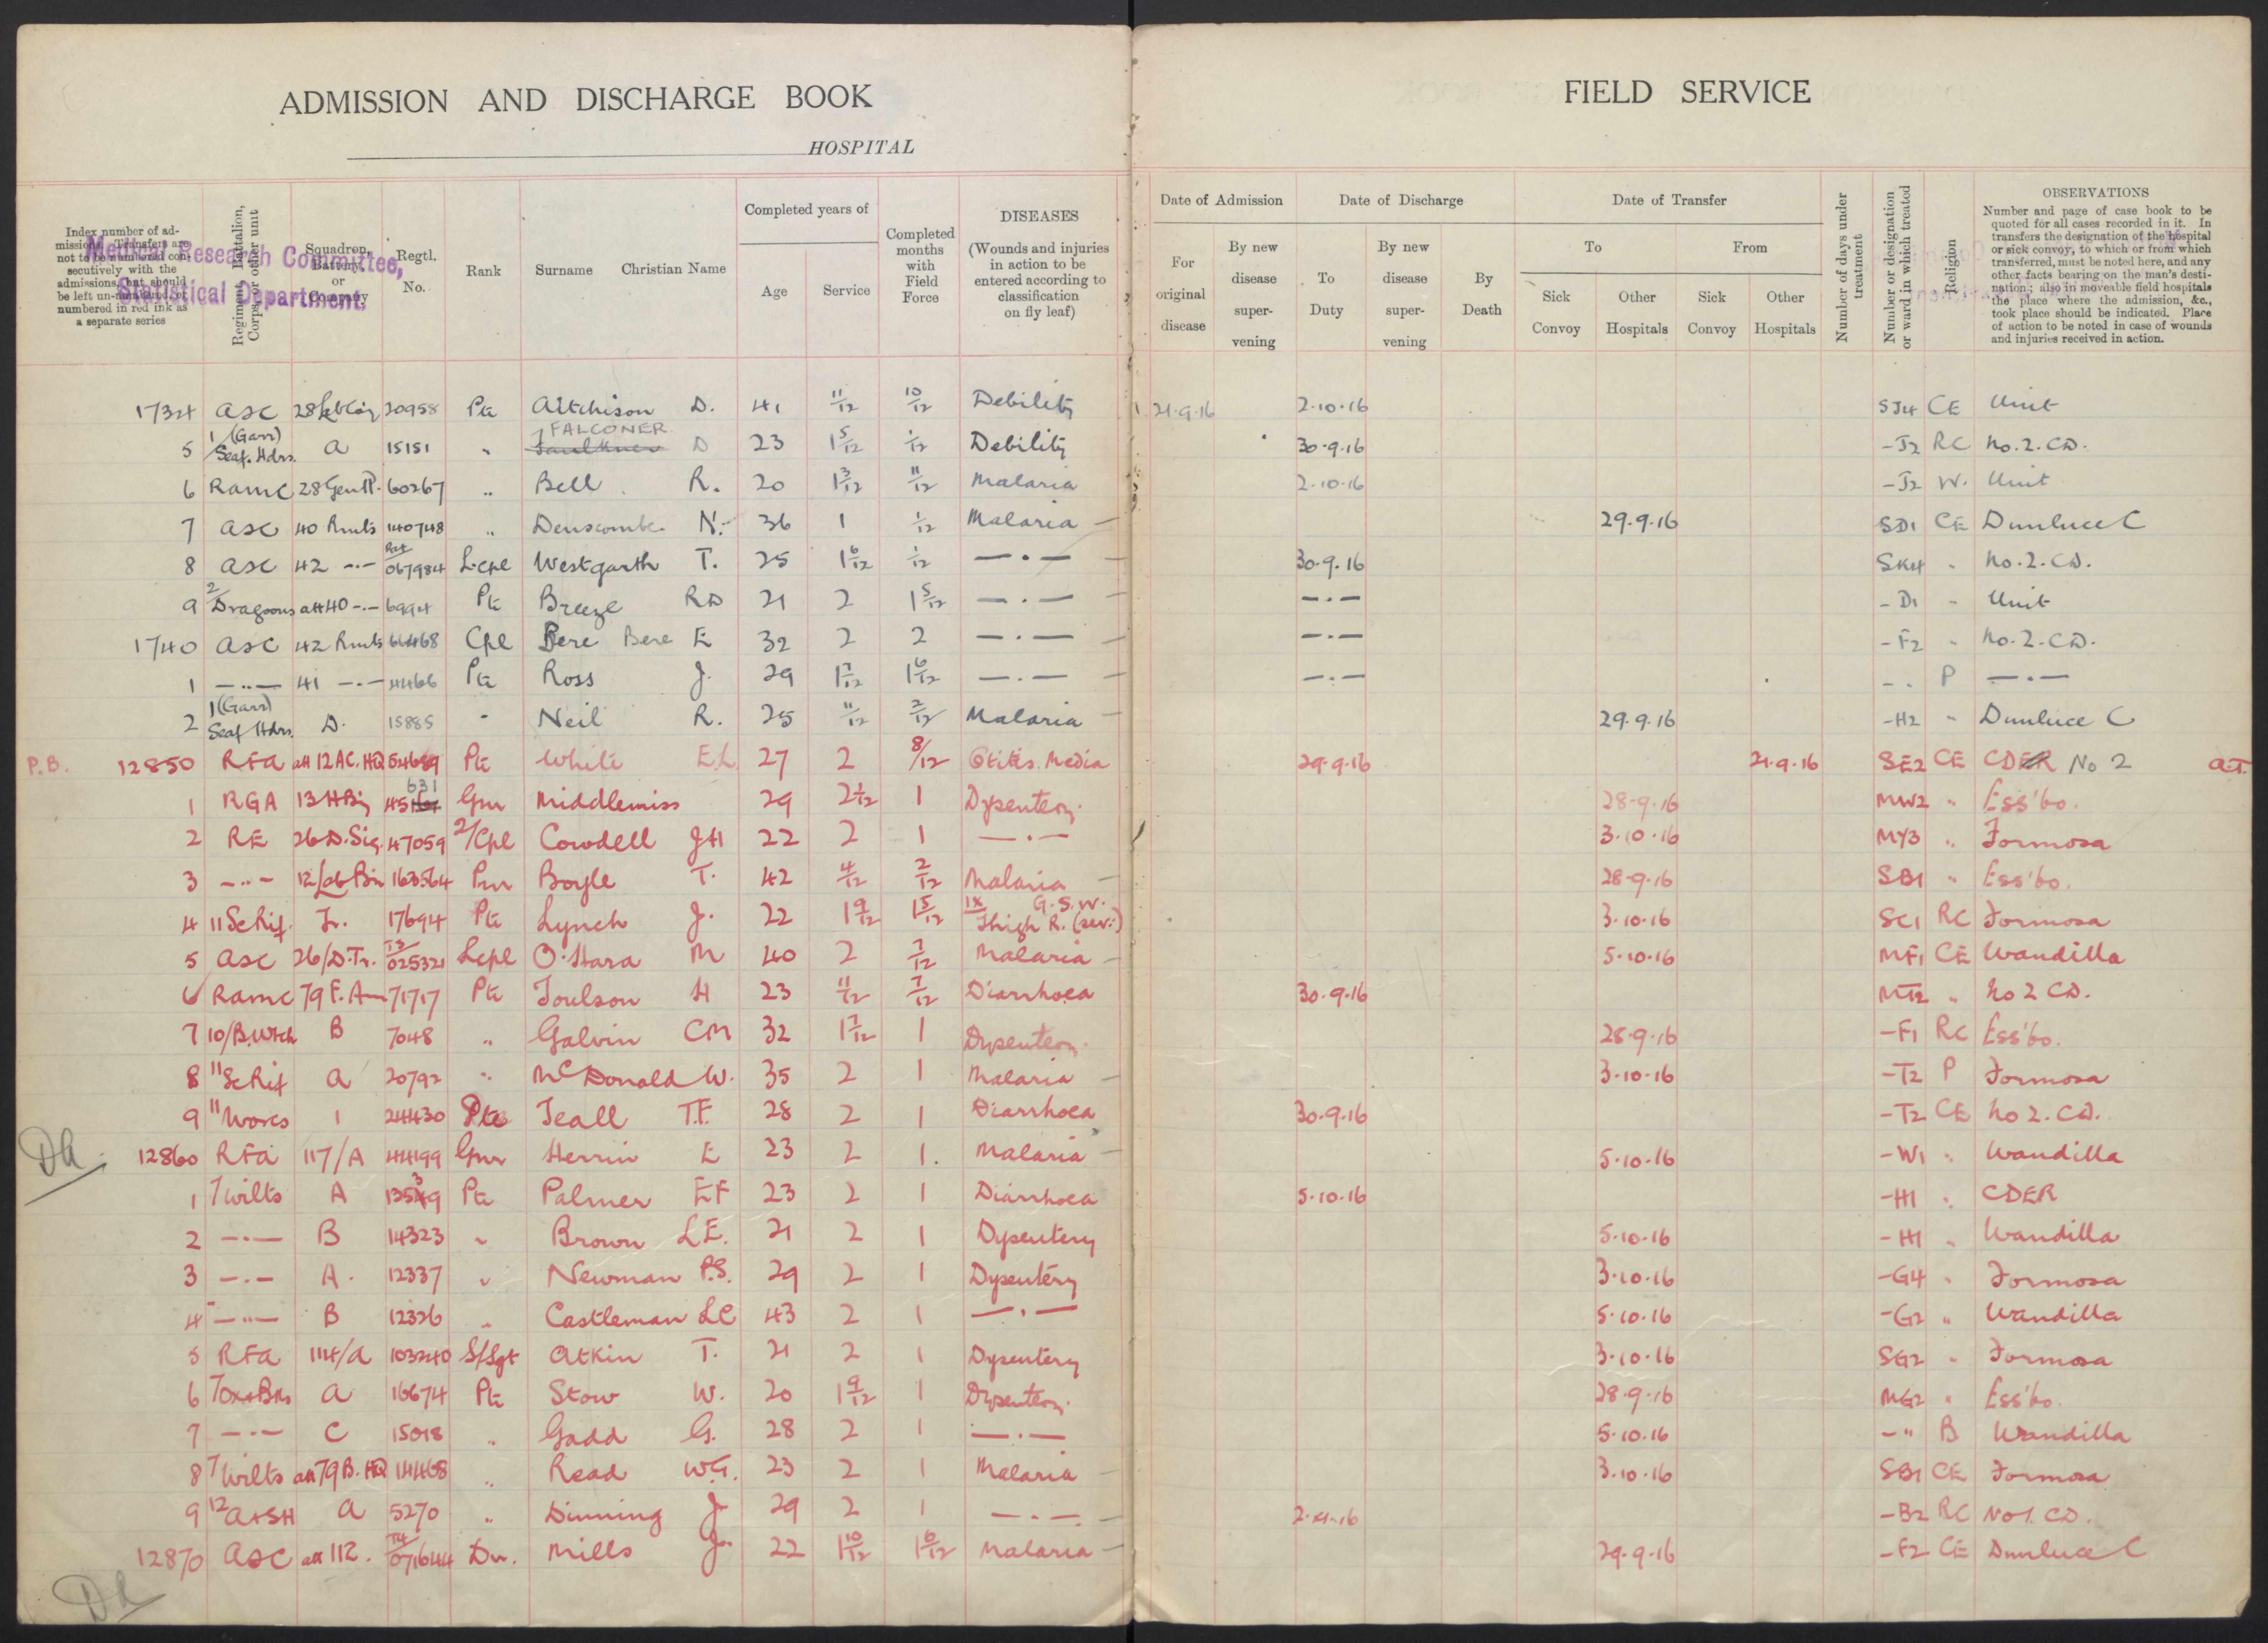 ADMISSION AND DISCHARGE BOOK
HOSPITAL
FIELD SERVICE
Medical Research Committee,
Statistical Department.
Index number of admissions. Transfers are not to be numbered consecutively with the admissions, but should be left un-numbered, or numbered in red ink as a separate series
Regiment, Battalion, Corps, or other unit
Squadron, Battery, or Company
Regtl. No.
Rank
Surname Christian Name
Completed years of
Age Service
Completed months with Field Force
DISEASES
(Wounds and injuries in action to be entered according to classification on fly leaf)
Date of Admission
For original disease
By new disease supervening
Date of Discharge
To Duty
By new disease supervening
By Death
Date of Transfer
To From
Sick Convoy
Other Hospitals
Sick Convoy
Other Hospitals
Number of days under treatment
Number or designation or ward in which treated
Religion
OBSERVATIONS
Number and page of case book to be
quoted for all cases recorded in it. In
transfers the designation of the hospital
or sick convoy, to which or from which
transferred, must be noted here, and any
other facts bearing on the man's desti-
nation; also in moveable field hospitals
the place where the admission, &c.,
took place should be indicated. Place
of action to be noted in case of wounds
and injuries received in action.
1734 ASC 20958 Pte Aitchison D. 41 11/12 10/12 Debility 21.9.16 2.10.16 SJ4 CE Unit
5 1 (Garr) Seaf. Hdrs. A 15151 " FALCONER D 23 1 5/12 1/12 Debility 30.9.16 -J2 RC No.2.CD.
6 RAMC 28 Gen H. 60267 " Bell R. 20 1 3/12 11/12 Malaria 2.10.16 -J2 W. Unit
7 ASC 40 Rmts 140748 " Denscombe N. 36 1 1/12 Malaria 29.9.16 SD1 CE Dunluce C
8 ASC 42 -"- 067984 L.cpl Westgarth T. 25 1 6/12 1/12 -"- 30.9.16 SK4 " No.2.CD.
9 2/Dragoons att 40 -"- 6994 Pte Breeze RD 21 2 1 5/12 -"- -"- -D1 " Unit
1740 ASC 42 Rmts Cpl Bere Bere E 32 2 2 -"- -"- -F2 " No.2.CD.
1 -"- 41 -"- 4466 Pte Ross J. 29 1 7/12 1 6/12 -"- -"- -" P -"-
2 1 (Garr) Seaf Hdrs. D. 15885 " Neil R. 25 11/12 2/12 Malaria 29.9.16 -H2 " Dunluce C
P.B. 12850 RFA att 12 AC. HQ Pte White E.L. 27 2 8/12 Otitis Media 29.9.16 21.9.16 SE2 CE CDER No 2 A.T.
1 RGA 13 HBy 45631 Gnr Middlemiss 29 2 1/12 1 Dysentery 28.9.16 MW2 " Ess'bo.
2 RE 26 D.Sig. 47059 2/Cpl Cowdell JH 22 2 1 -"- 3.10.16 MY3 " Formosa
3 -"- 12/Lab Bn 163564 Pnr Boyle T. 42 4/12 2/12 Malaria 28.9.16 SB1 " Ess'bo.
4 11 Sc Rif. 17694 Pte Lynch J. 22 1 9/12 1 5/12 IX G.S.W. Thigh R. (sev:) 3.10.16 SC1 RC Formosa
5 ASC 26/D.Tr. T3/025321 Lcpl O'Hara M 40 2 7/12 Malaria 5.10.16 MF1 CE Wandilla
6 RAMC 79 F.A 71717 Pte Toulson H 23 11/12 7/12 Diarrhoea 30.9.16 MT2 " No 2 CD.
7 10/B.Wtch B 7048 " Galvin CM 32 1 7/12 1 Dysentery 28.9.16 -F1 RC Ess'bo.
8 11 Sc Rif A 20792 " McDonald W. 35 2 1 Malaria 3.10.16 -T2 P Formosa
9 11 Worcs 1 24430 Pte Teall T.F. 28 2 1 Diarrhoea 30.9.16 -T2 CE No 2. CD.
12860 RFA 117/A 44199 Gnr Herrin E 23 2 1. Malaria 5.10.16 -W1 " Wandilla
1 7 Wilts A Pte Palmer EF 23 2 1 Diarrhoea 5.10.16 -H1 " CDER
2 -"- B 14323 " Brown L.E. 21 2 1 Dysentery 5.10.16 -H1 " Wandilla
3 -"- A. 12337 " Newman P.S. 29 2 1 Dysentery 3.10.16 -G4 " Formosa
4 -"- B 12326 " Castleman LC 43 2 1 -"- 5.10.16 -G2 " Wandilla
5 RFA 114/A 103240 S/Sgt Atkin T. 21 2 1 Dysentery 3.10.16 SG2 " Formosa
6 7 Ox+Bks A 16674 Pte Stow W. 20 1 9/12 1 Dysentery 28.9.16 MG2 " Ess'bo.
7 -"- C 15018 " Gadd G. 28 2 1 -"- 5.10.16 -" B Wandilla
8 7 Wilts att 79 B. HQ 14468 " Read W.G. 23 2 1 Malaria 3.10.16 SB1 CE Formosa
9 12 A+SH A 5270 " Dinning J 29 2 1 -"- -B2 RC No 1. CD.
12870 ASC att 112. T4/071644 Dvr. Mills J. 22 1 10/12 1 6/12 Malaria 29.9.16 -F2 CE Dunluce C